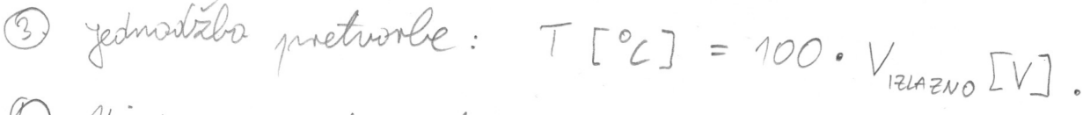 ③ jednadžba pretvorbe: T [°C] = 100 · V IZLAZNO [V].